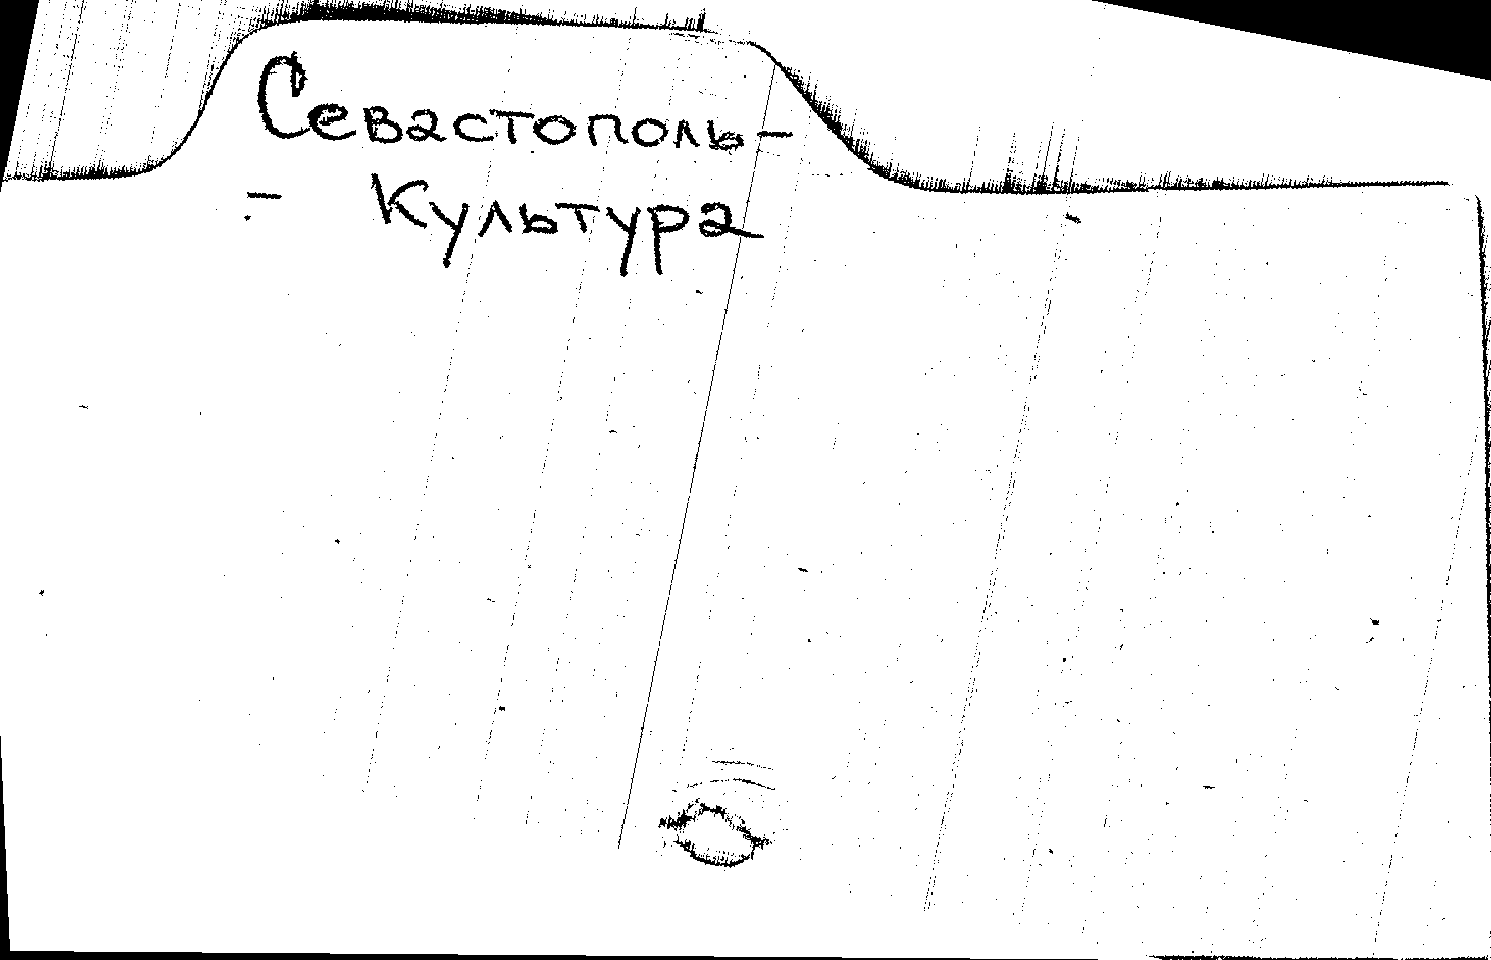 Севастополь-
- Культура